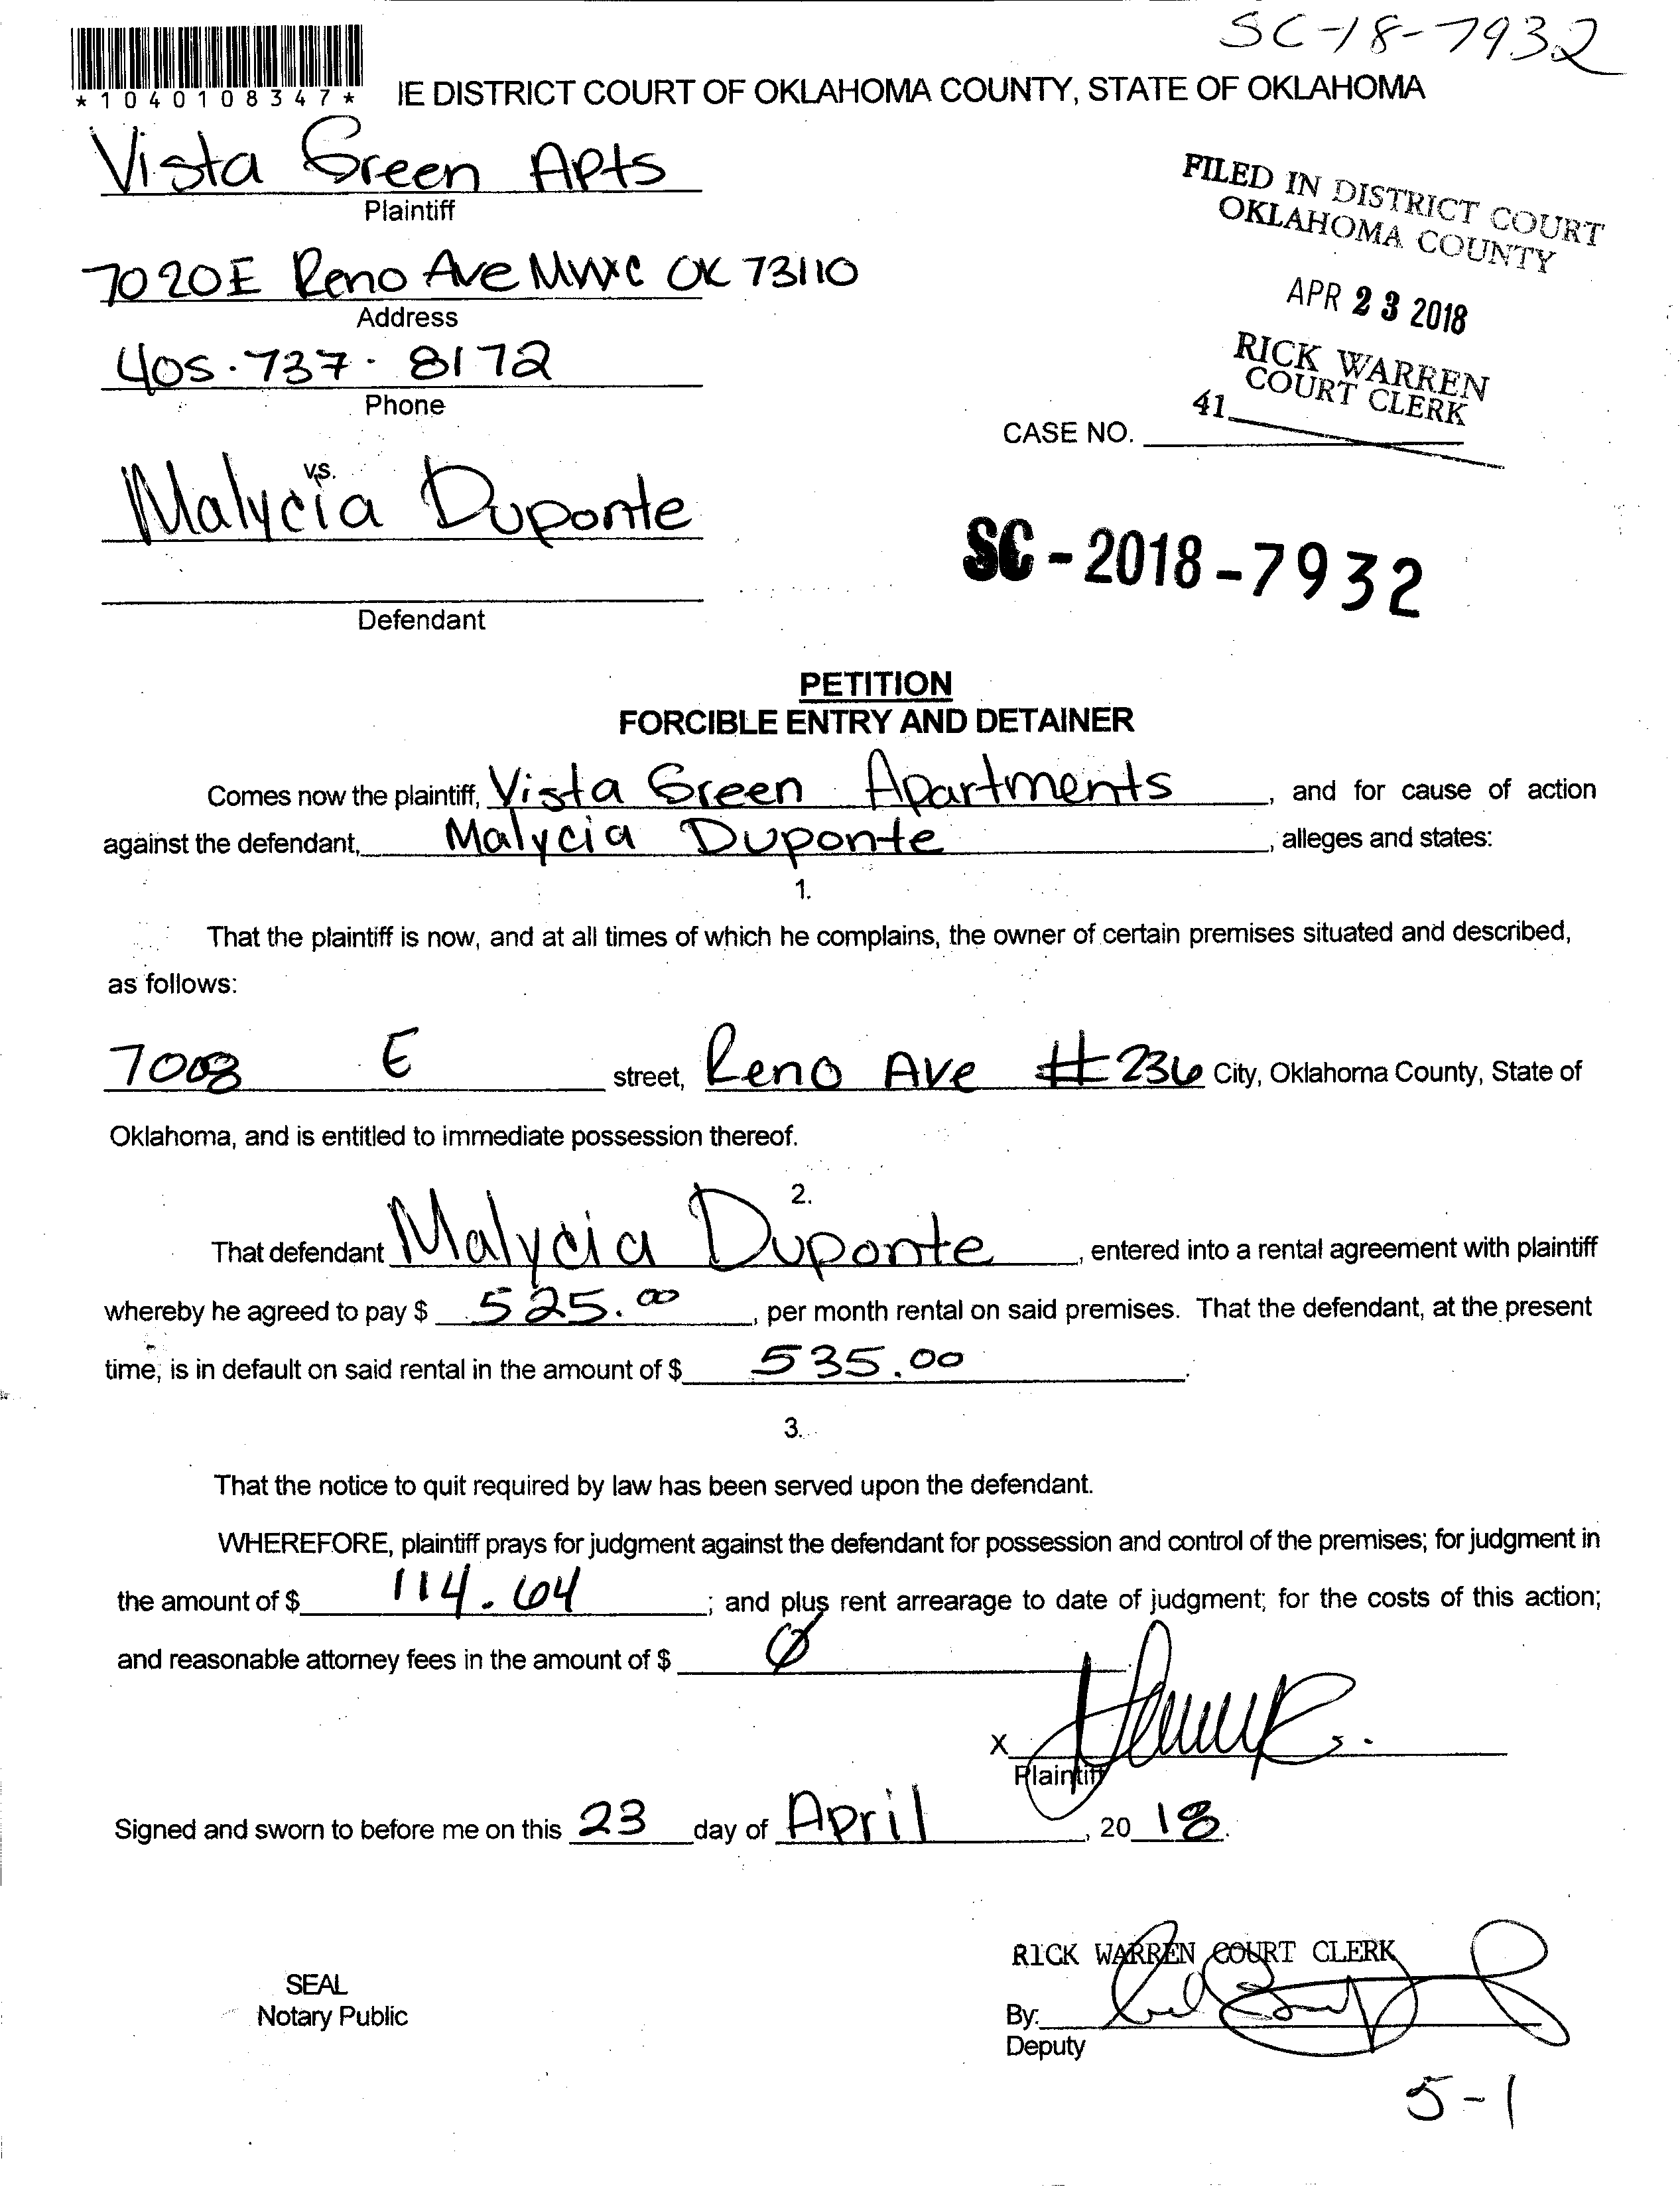 SC-18-7932
*1040108347*
IE DISTRICT COURT OF OKLAHOMA COUNTY, STATE OF OKLAHOMA
Vista Green Apts
Plaintiff
7020 E Reno Ave MWC OK 73110
Address
405.737.8172
Phone
FILED IN DISTRICT COURT
OKLAHOMA COUNTY
APR 23 2018
RICK WARREN
COURT CLERK
41
CASE NO.
vs.
Malycia Duponte
Defendant
SC-2018-7932
PETITION
FORCIBLE ENTRY AND DETAINER
Comes now the plaintiff, Vista Green Apartments, and for cause of action
against the defendant, Malycia Duponte, alleges and states:
1.
That the plaintiff is now, and at all times of which he complains, the owner of certain premises situated and described,
as follows:
7008 E street, Reno Ave #236 City, Oklahoma County, State of
Oklahoma, and is entitled to immediate possession thereof.
2.
That defendant Malycia Duponte, entered into a rental agreement with plaintiff
whereby he agreed to pay $ 525.00, per month rental on said premises. That the defendant, at the present
time, is in default on said rental in the amount of $ 535.00.
3.
That the notice to quit required by law has been served upon the defendant.
WHEREFORE, plaintiff prays for judgment against the defendant for possession and control of the premises; for judgment in
the amount of $ 114.64; and plus rent arrearage to date of judgment; for the costs of this action;
and reasonable attorney fees in the amount of $ Ø
X
Plaintiff
Signed and sworn to before me on this 23 day of April, 2018.
RICK WARREN COURT CLERK
SEAL
Notary Public
By:
Deputy
5-1